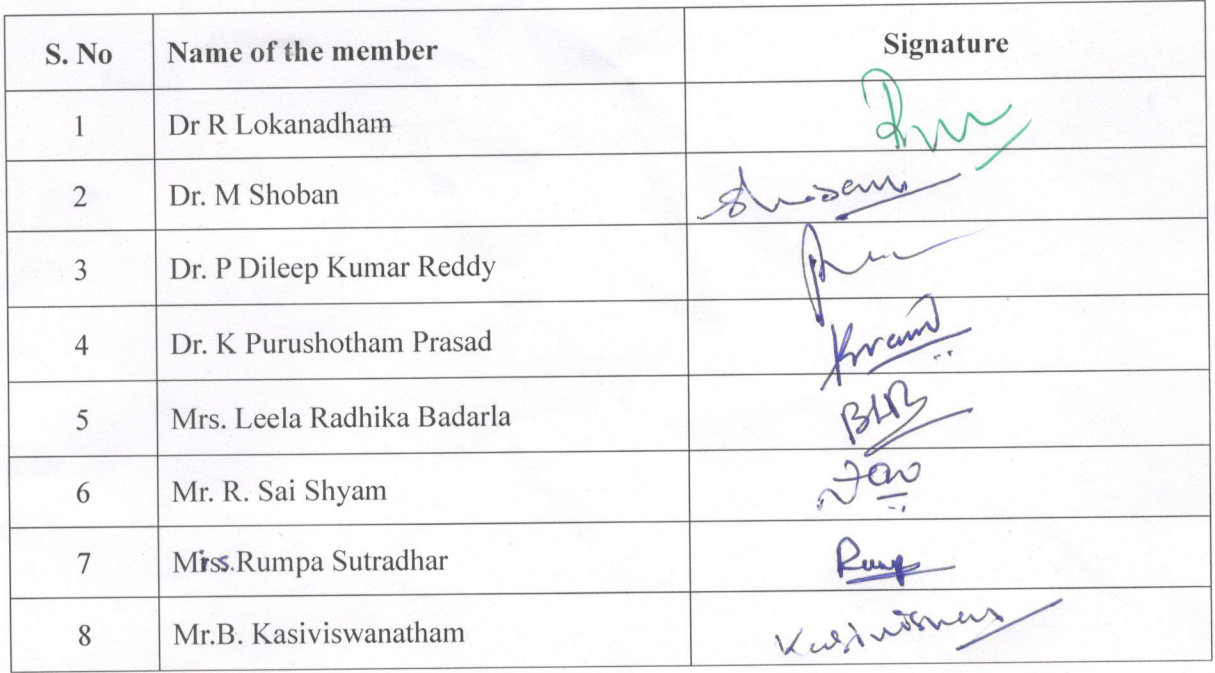 S. No Name of the member Signature
1 Dr R Lokanadham
2 Dr. M Shoban
3 Dr. P Dileep Kumar Reddy
4 Dr. K Purushotham Prasad
5 Mrs. Leela Radhika Badarla BLR
6 Mr. R. Sai Shyam
7 Mrs. Rumpa Sutradhar
8 Mr.B. Kasiviswanatham